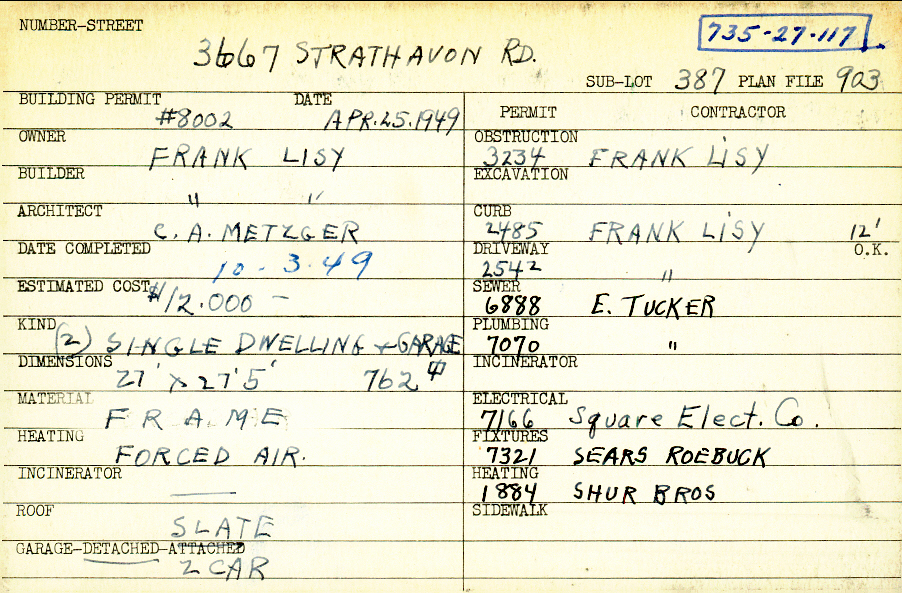 NUMBER-STREET
735-27-117
3667 STRATHAVON RD.
SUB-LOT 387 PLAN FILE 903
BUILDING PERMIT DATE
#8002 APR.25.1949
OWNER
FRANK LISY
BUILDER
" "
ARCHITECT
C. A. METZGER
DATE COMPLETED
10-3-49
ESTIMATED COST
$12.000 —
KIND
(2) SINGLE DWELLING + GARAGE
DIMENSIONS
27' x 27'5' 762
MATERIAL
FRAME
HEATING
FORCED AIR.
INCINERATOR
—
ROOF
SLATE
GARAGE-DETACHED-ATTACHED
2 CAR
PERMIT CONTRACTOR
OBSTRUCTION
3234 FRANK LISY
EXCAVATION
CURB
2485 FRANK LISY 12'
DRIVEWAY O.K.
2542 "
SEWER
6888 E. TUCKER
PLUMBING
7070 "
INCINERATOR
ELECTRICAL
7166 Square Elect. Co.
FIXTURES
7321 SEARS ROEBUCK
HEATING
1884 SHUR BROS
SIDEWALK